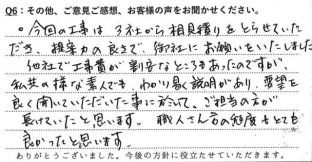 Q6：その他、ご意見ご感想、お客様の声をお聞かせください。
・今回の工事は3社から相見積りをとらせていた
だき、提案力の良さで、御社にお願いをいたしました
他社で工事費が割安なところもあったのですが、
私共の様な素人でも、わかり易く説明があり、要望を
良く聞いていただいた事に於いて、ご担当の方が
長けていたと思います。職人さん方の態度もとても
良かったと思います。
ありがとうございました。今後の方針に役立たせていただきます。